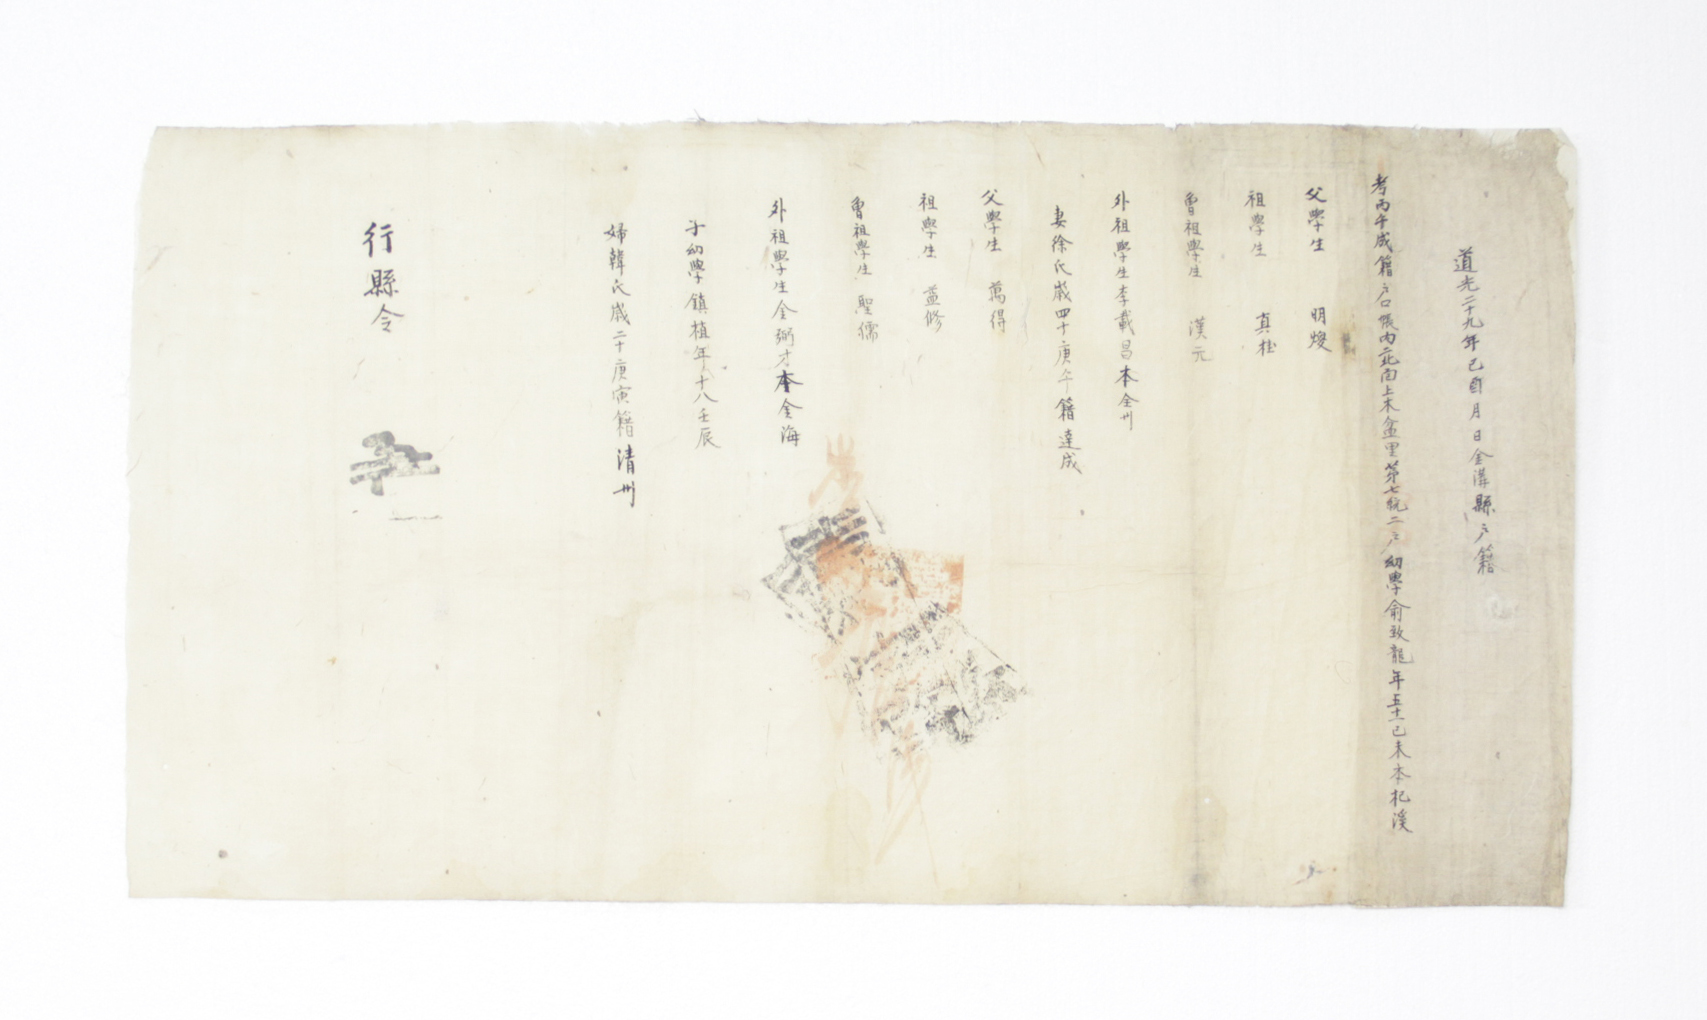 道光二十九年己酉月日金溝縣戶籍
考丙午成籍戶口帳內北面上木里第七統二戶幼學俞致龍年五十一己未本杞溪
父學生 明煥
祖學生 真桂
曾祖學生 漢元
外祖學生李載昌本全州
妻徐氏歲四十庚午籍達成
父學生 萬得
祖學生 益修
曾祖學生 聖儒
外祖學生金弼才本金海
子幼學鎮植年十八壬辰
婦韓氏歲二十庚寅籍清州
行縣令